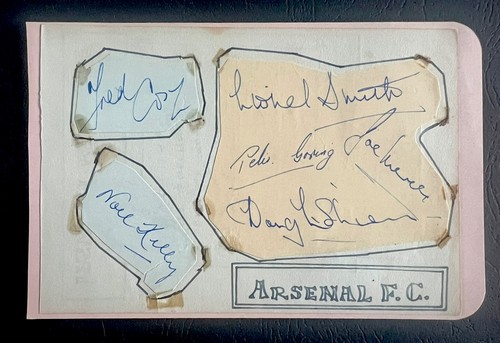 Fred Cox
Lionel Smith
Pete. Goring
Joe Mercer
Doug Lishman
Noel Kelly
ARSENAL F.C.